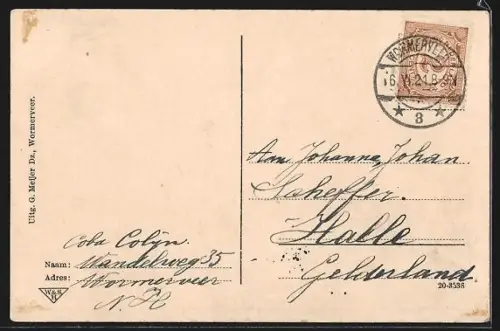 Uitg. G. Meijer Dz., Wormerveer.
WORMERVEER
6.VI.21.8-9N
★ 3 ★
Aan Johanna, Johan
Scheffer.
Halle
Gelderland.
Coba Colijn.
Naam: Wandelweg 35
Adres: Wormerveer
N.H
20-3536